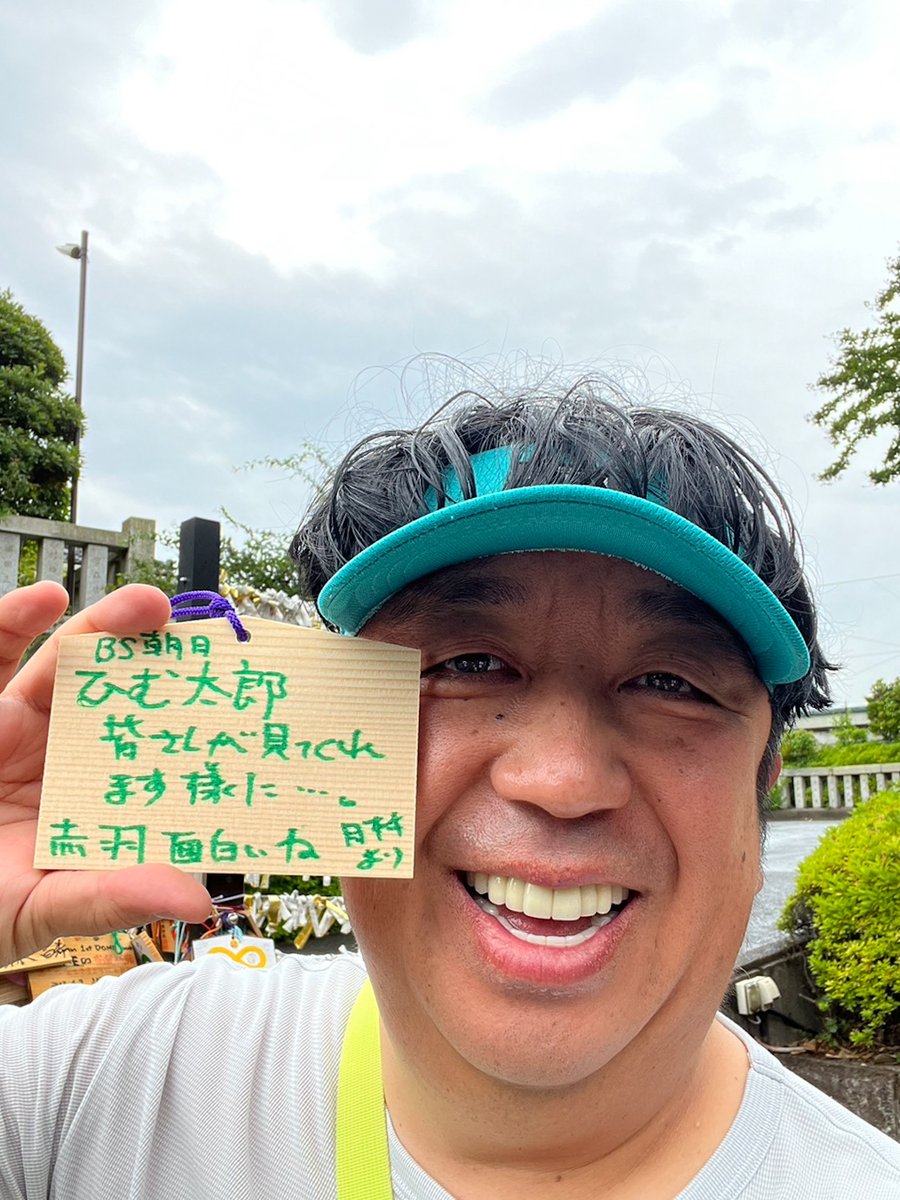 BS朝日
ひむ太郎
皆さんが見てくれ
ます様に…。
赤羽 面白いね 日村
より
1st DOME